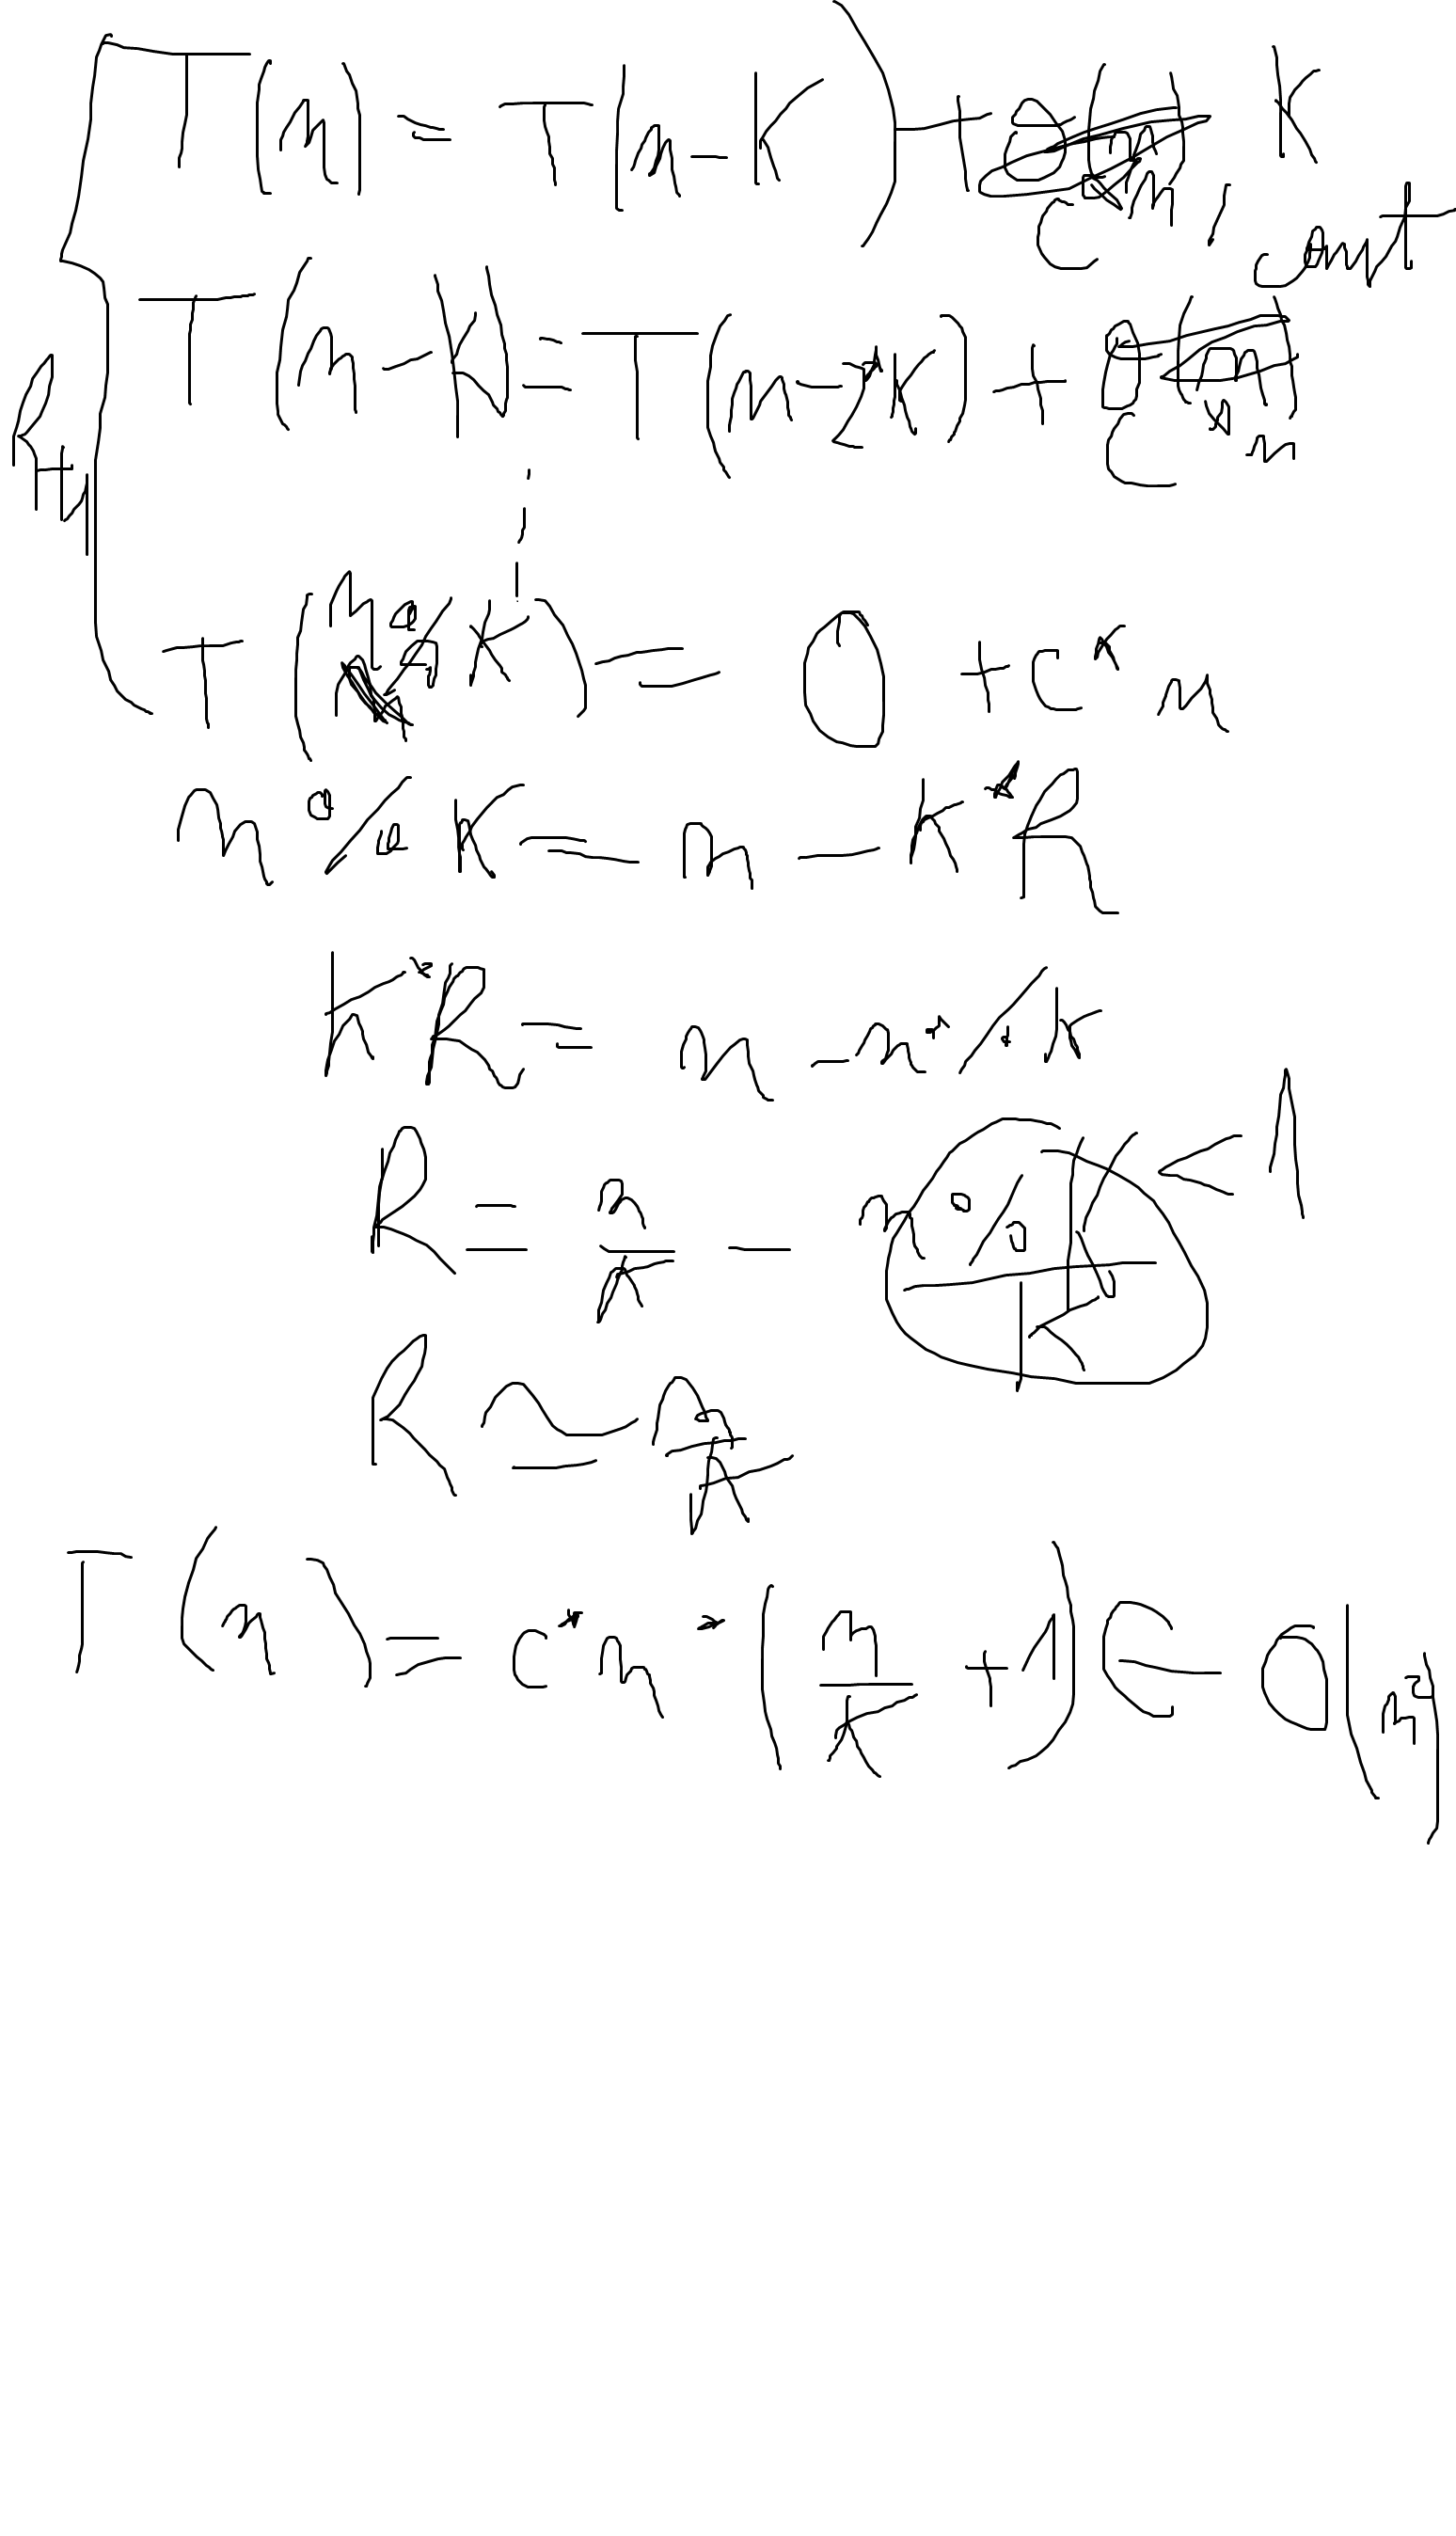 T(n) = T(n-K) + c*n, K const
T(n-K) = T(n-2*K) + c*n
R+1
T(n%K) = 0 + c*n
n%K = n - K*R
K*R = n - n%K
R = n/K - n%K/K < 1
R ≃ n/K
T(n) = c*n*(n/K + 1) ∈ O(n²)